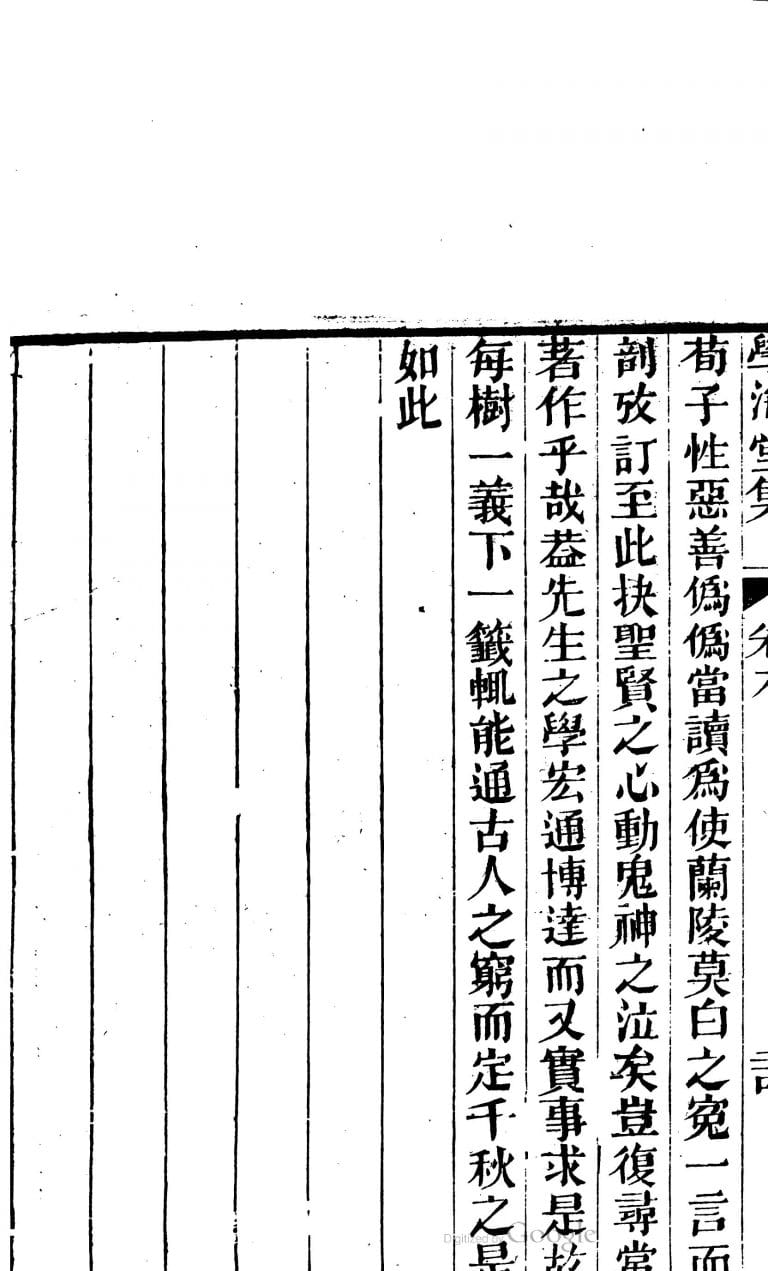 學海堂集 卷
荀子性惡善僞僞當讀爲使蘭陵莫白之寃一言而
剖攷訂至此抉聖賢之心動鬼神之泣矣豈復尋常
著作乎哉葢先生之學宏通博達而又實事求是故
每樹一義下一籤輒能通古人之窮而定千秋之是
如此
Digitized by Google